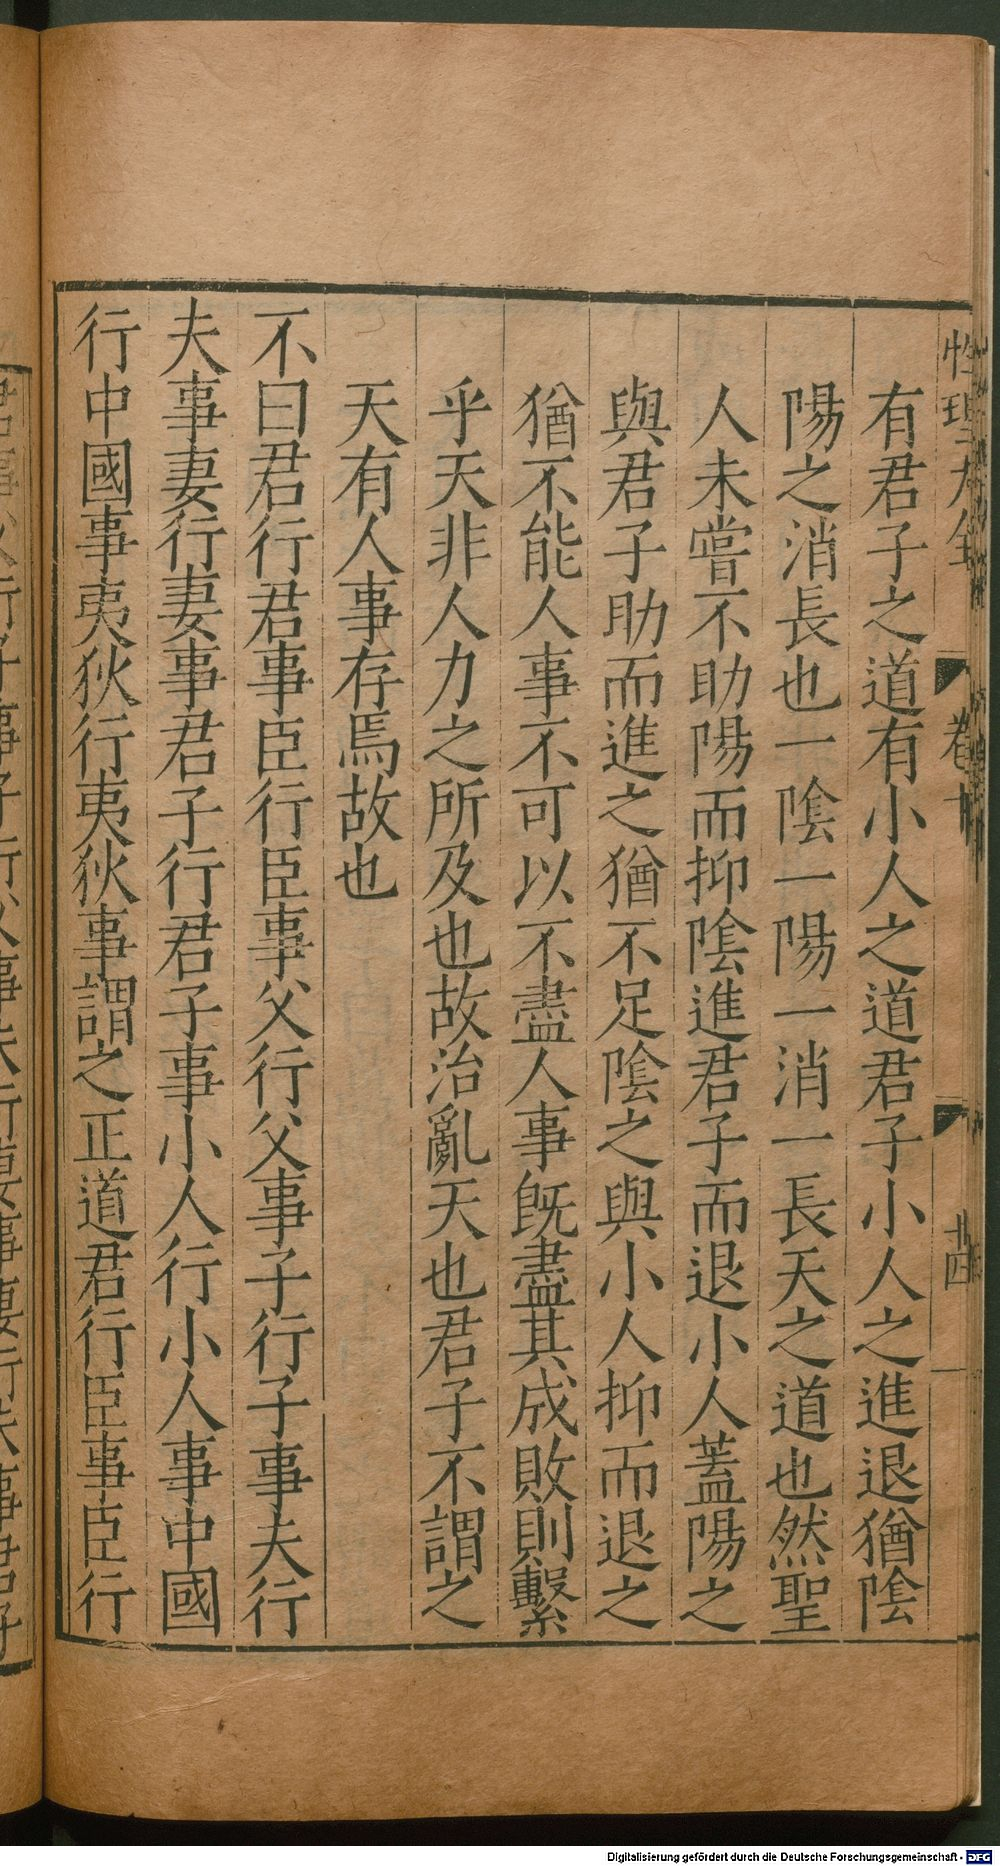 性理大全
卷十
廿四
有君子之道有小人之道君子小人之進退猶陰
陽之消長也一陰一陽一消一長天之道也然聖
人未嘗不助陽而抑陰進君子而退小人蓋陽之
與君子助而進之猶不足陰之與小人抑而退之
猶不能人事不可以不盡人事旣盡其成敗則繫
乎天非人力之所及也故治亂天也君子不謂之
天有人事存焉故也
不曰君行君事臣行臣事父行父事子行子事夫行
夫事妻行妻事君子行君子事小人行小人事中國
行中國事夷狄行夷狄事謂之正道君行臣事臣行
Digitalisierung gefördert durch die Deutsche Forschungsgemeinschaft - DFG